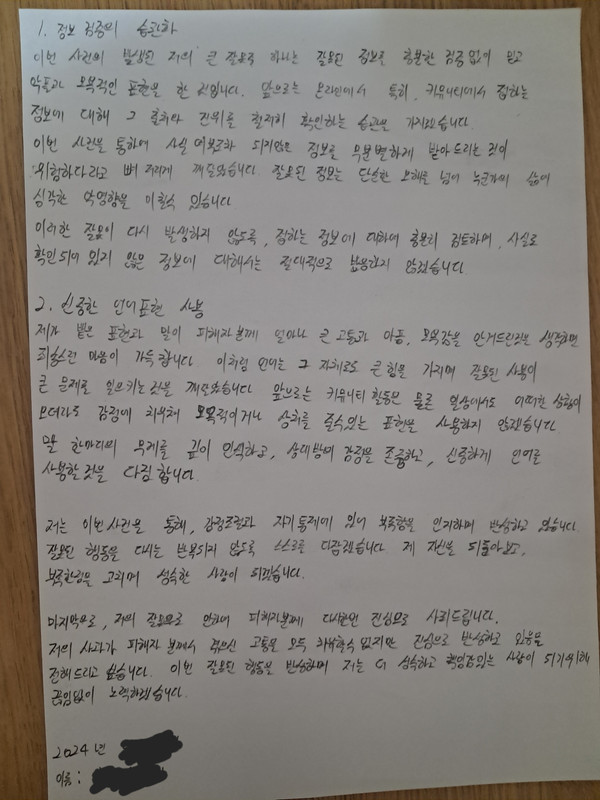 1. 정보 검증의 습관화
이번 사건의 발생된 저의 큰 잘못중 하나는 잘못된 정보를 충분한 검증 없이 믿고
악플과 모욕적인 표현을 한 것입니다. 앞으로는 온라인에서 특히, 커뮤니티에서 접하는
정보에 대해 그 출처와 진위를 철저히 확인하는 습관을 가지겠습니다.
이번 사건을 통하여 사실 여부조차 되지않은 정보를 무분별하게 받아드리는 것이
위험하다라고 뼈 저리게 깨달았습니다. 잘못된 정보는 단순한 오해를 넘어 누군가의 삶에
심각한 악영향을 미칠수 있습니다.
이러한 잘못이 다시 발생하지 않도록, 접하는 정보에 대하여 충분히 검토하며, 사실로
확인되어 있지 않은 정보에 대해서는 절대적으로 반응하지 않겠습니다.
2. 신중한 언어표현 사용
제가 뱉은 표현과 말이 피해자분께 얼마나 큰 고통과 아픔, 모욕감을 안겨드린것을 생각하면
죄송스런 마음이 가득합니다. 이처럼 언어는 그 자체로도 큰 힘을 가지며 잘못된 사용이
큰 문제를 일으키는것을 깨달았습니다. 앞으로는 커뮤니티 활동은 물론 일상에서도 어떠한 상황이
오더라도 감정에 치우쳐 모욕적이거나 상처를 줄수있는 표현을 사용하지 않겠습니다.
말 한마디의 무게를 깊이 인식하고, 상대방의 감정을 존중하고, 신중하게 언어를
사용할것을 다짐합니다.
저는 이번사건을 통해, 감정조절과 자기통제에 있어 부족함을 인지하며 반성하고 있습니다.
잘못된 행동을 다시는 반복되지 않도록 스스로를 다잡겠습니다. 제 자신을 되돌아보고,
부족한점을 고치며 성숙한 사람이 되겠습니다.
마지막으로, 저의 잘못으로 인하여 피해자분께 다시한번 진심으로 사죄드립니다.
저의 사과가 피해자 분께서 겪으신 고통을 모두 치유할수 없지만 진심으로 반성하고 있음을
전해드리고 싶습니다. 이번 잘못된 행동을 반성하며 저는 더 성숙하고 책임감있는 사람이 되기위해
끊임없이 노력하겠습니다.
2024년
이름 :